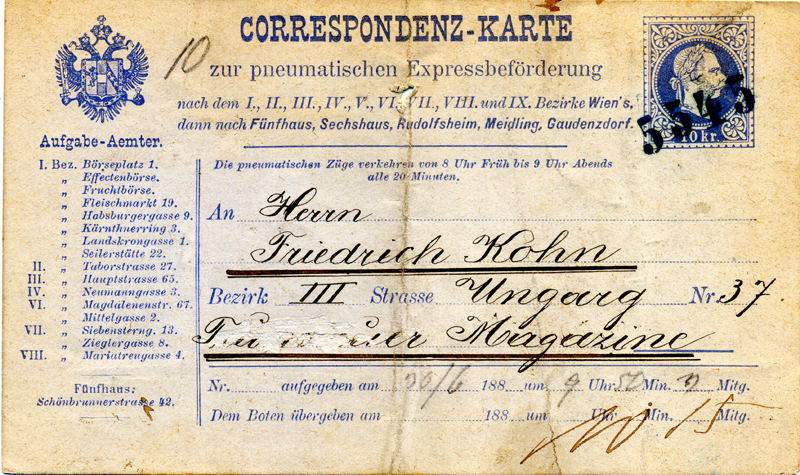 CORRESPONDENZ-KARTE
10
zur pneumatischen Expressbeförderung
nach dem I., II., III., IV., V., VI., VII., VIII. und IX. Bezirke Wien's,
dann nach Fünfhaus, Sechshaus, Rudolfsheim, Meidling, Gaudenzdorf.
10 kr.
5545
Aufgabe-Aemter.
I. Bez. Börseplatz 1.
„ Effectenbörse.
„ Fruchtbörse.
„ Fleischmarkt 19.
„ Habsburgergasse 9.
„ Kärnthnerring 3.
„ Landskrongasse 1.
„ Seilerstätte 22.
II. „ Taborstrasse 27.
III. „ Hauptstrasse 65.
IV. „ Neumanngasse 3.
VI. „ Magdalenenstr. 67.
„ Mittelgasse 2.
VII. „ Siebensterng. 13.
„ Zieglergasse 8.
VIII. „ Mariatreugasse 4.
Fünfhaus:
Schönbrunnerstrasse 42.
Die pneumatischen Züge verkehren von 8 Uhr Früh bis 9 Uhr Abends
alle 20 Minuten.
An Herrn
Friedrich Kohn
Bezirk III Strasse Ungarg Nr. 37
Magazine
Nr. aufgegeben am 20/6 188 um 9 Uhr 50 Min. Mitg.
Dem Boten übergeben am 188 um Uhr Min. Mitg.